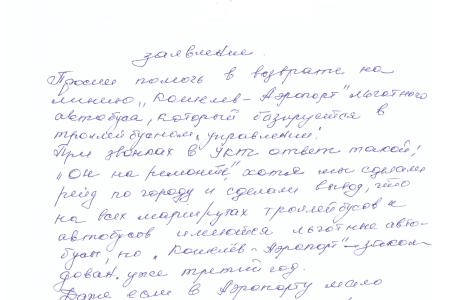 заявление.
Просим помочь в возврате на
линию „Кошелев - Аэропорт" льготного
автобуса, который базируется в
троллейбусном управлении!
При звонках в УКТ ответ такой:
„Он на ремонте", хотя мы сделали
рейд по городу и сделали вывод, что
на всех маршрутах троллейбусов и
автобусов имеются льготные авто-
бусы, но „Кошелёв - Аэропорт" - закол-
дован. уже третий год.
Даже если в Аэропорту мало